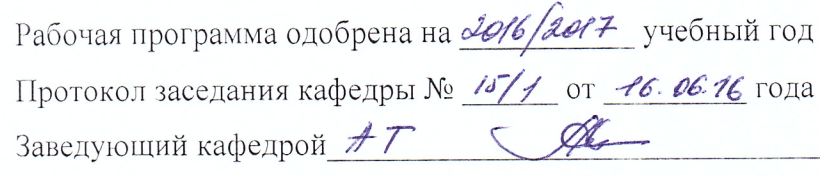 Рабочая программа одобрена на 2016/2017 учебный год
Протокол заседания кафедры № 15/1 от 16.06.16 года
Заведующий кафедрой АТ